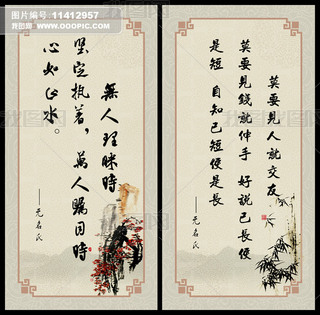 图片编号:11412957
www.ooopic.com
我图网
無人理睬時
坚定执着，萬人瞩目時
心如止水。
——无名氏
莫要見人就交友
莫要見錢就伸手 好説己長便
是短 自知己短便是長
——无名氏